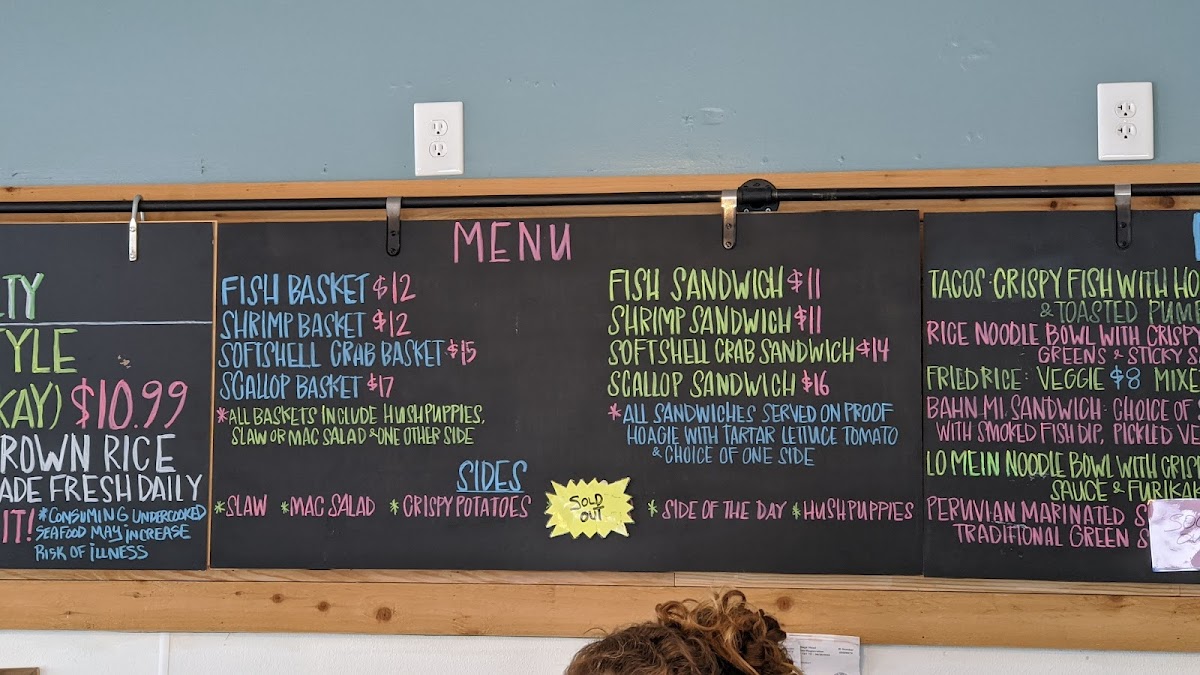 TY
TYLE
KAY) $10.99
ROWN RICE
ADE FRESH DAILY
IT! *CONSUMING UNDERCOOKED
SEAFOOD MAY INCREASE
RISK OF ILLNESS
MENU
FISH BASKET $12
SHRIMP BASKET $12
SOFTSHELL CRAB BASKET $15
SCALLOP BASKET $17
*ALL BASKETS INCLUDE HUSHPUPPIES,
SLAW OR MAC SALAD & ONE OTHER SIDE
FISH SANDWICH $11
SHRIMP SANDWICH $11
SOFTSHELL CRAB SANDWICH $14
SCALLOP SANDWICH $16
*ALL SANDWICHES SERVED ON PROOF
HOAGIE WITH TARTAR LETTUCE TOMATO
& CHOICE OF ONE SIDE
SIDES
*SLAW *MAC SALAD *CRISPY POTATOES
SOLD
OUT
*SIDE OF THE DAY *HUSHPUPPIES
TACOS: CRISPY FISH WITH HO
& TOASTED PUM
RICE NOODLE BOWL WITH CRISPY
GREENS & STICKY S
FRIED RICE: VEGGIE $8 MIXE
BAHN MI SANDWICH: CHOICE OF
WITH SMOKED FISH DIP, PICKLED VE
LO MEIN NOODLE BOWL WITH CRISP
SAUCE & FURIKAK
PERUVIAN MARINATED S
TRADITIONAL GREEN S